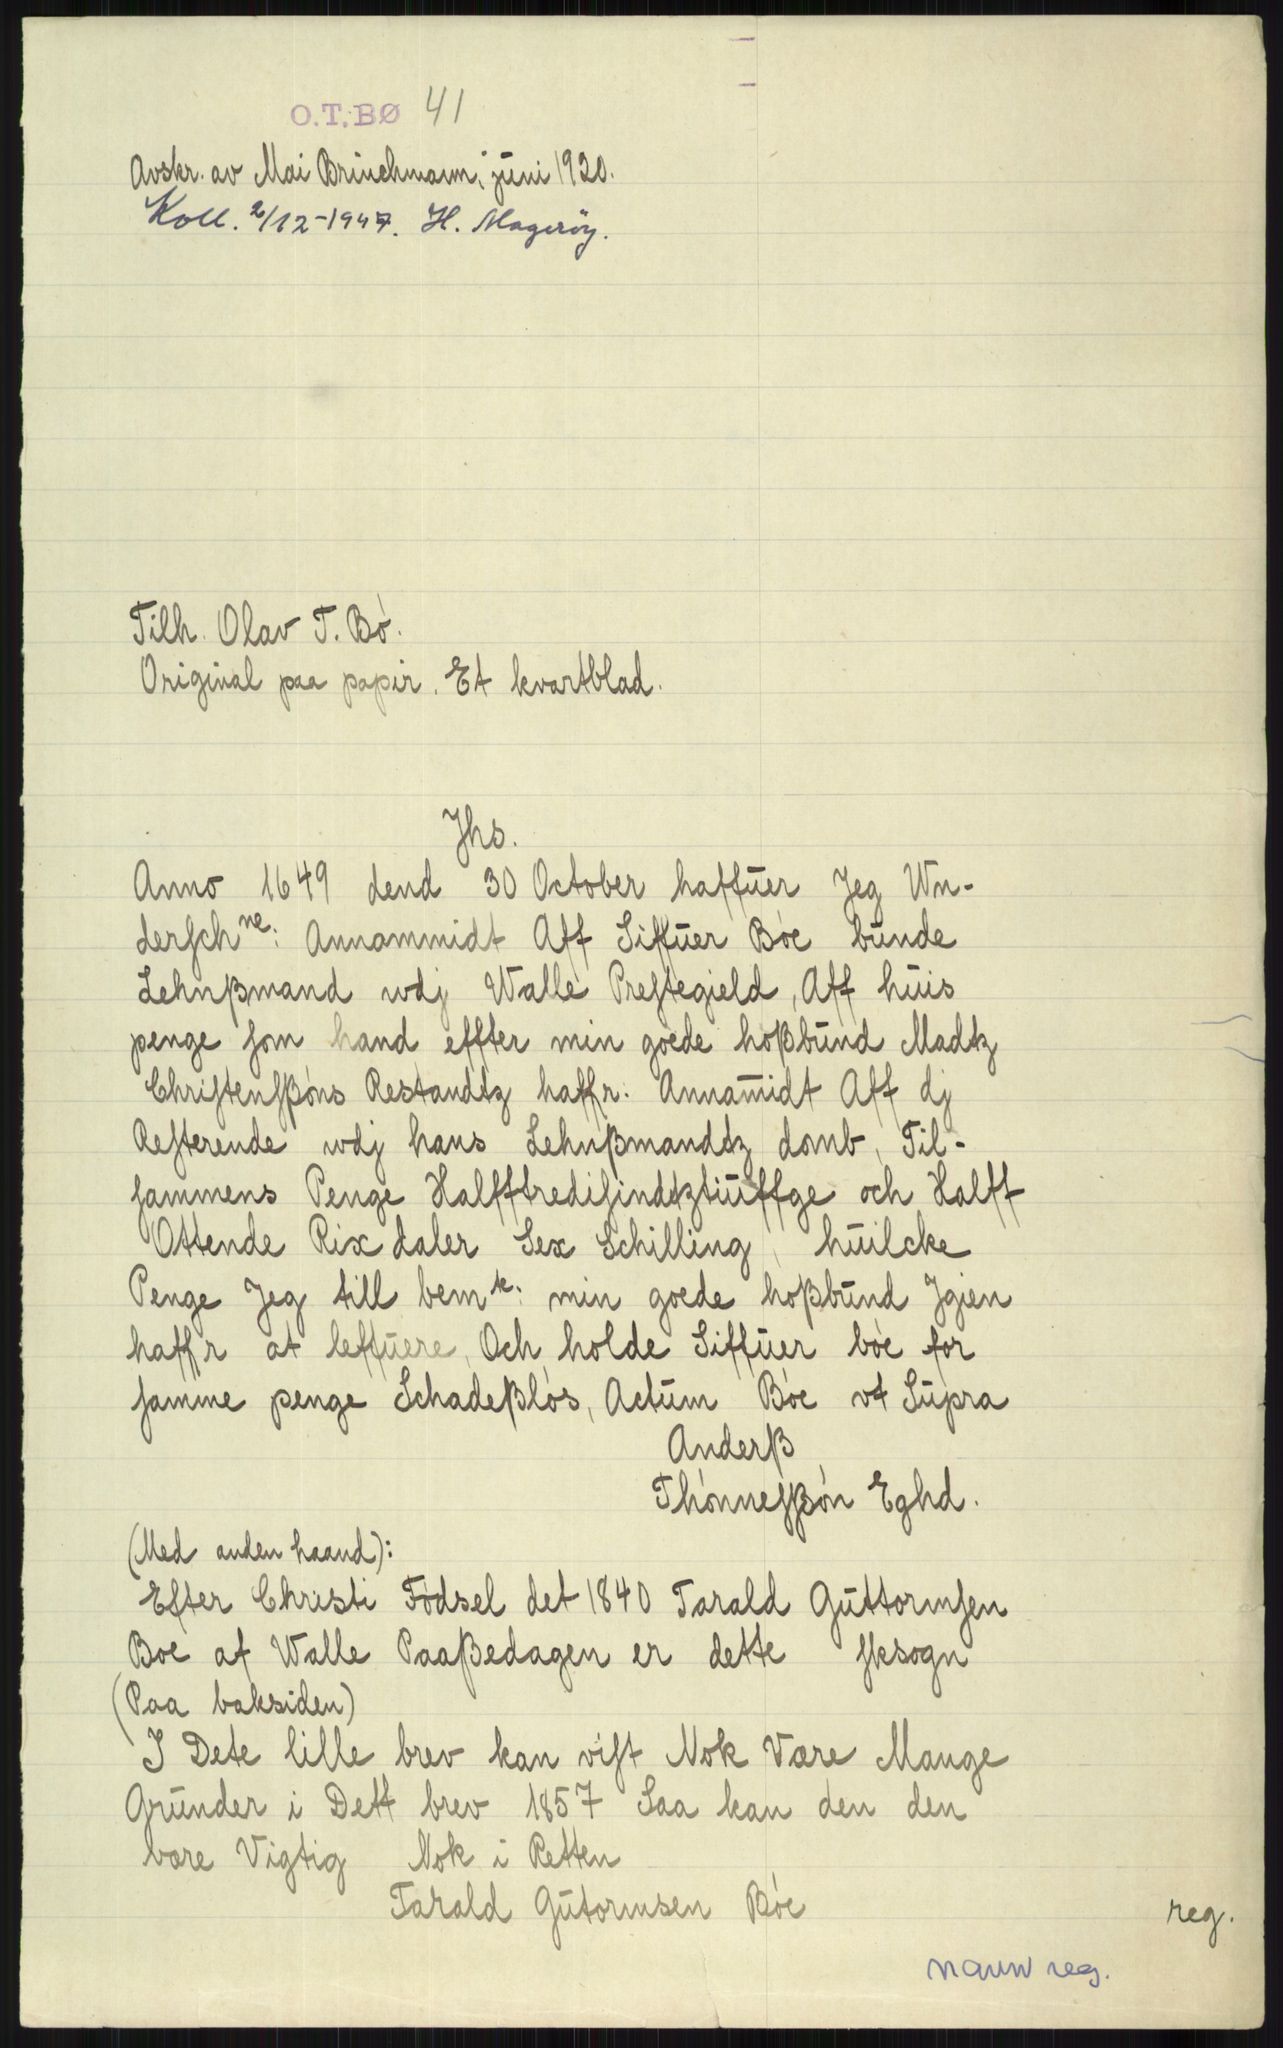 O.T. BØ 41
Avskr. av Mai Brinchmann, juni 1920.
Koll. 2/12-1947. H. Magerøy.
Tilh. Olav T. Bó.
Original paa papir. Et kvartblad.
Jhs.
Anno 1649 dend 30 October haffuer Jeg Wn-
derſch ne: Annammidt Aff Siffuer Bóe bunde
Lehnßmand wdj Walle Preſtegield, Aff huis
penge ſom hand effter min goede hoßbund Madtz
Chriſtenſßóns Restandtz haffr: Annam̄idt Aff dj
Reſterende wdj hans Lehnßmandtz domb, Til-
ſammens Penge Halfftrediſindtztiuffge och Halff
Ottende Rix daler Sex Schilling, huilcke
Penge Jeg till bem te: min goede hoßbund Jgien
haffr at leffuere, Och holde Siffuer bóe for
ſamme penge Schadeßlós, Actum Bóe vt Supra
Anderß
Thónneſßón Eghd.
(Med anden haand):
Efter Christi Fódsel det 1840 Tarald Guttormſen
Boe af Walle Paaßedagen er dette ſksogn
(Paa baksiden)
I Dete lille brev kan viſt Nok Være Mange
Grunder i Dett brev 1857 Saa kan den den
være Vigtig Nok i Retten
Tarald Gutormsen Bóe
reg.
navn reg.